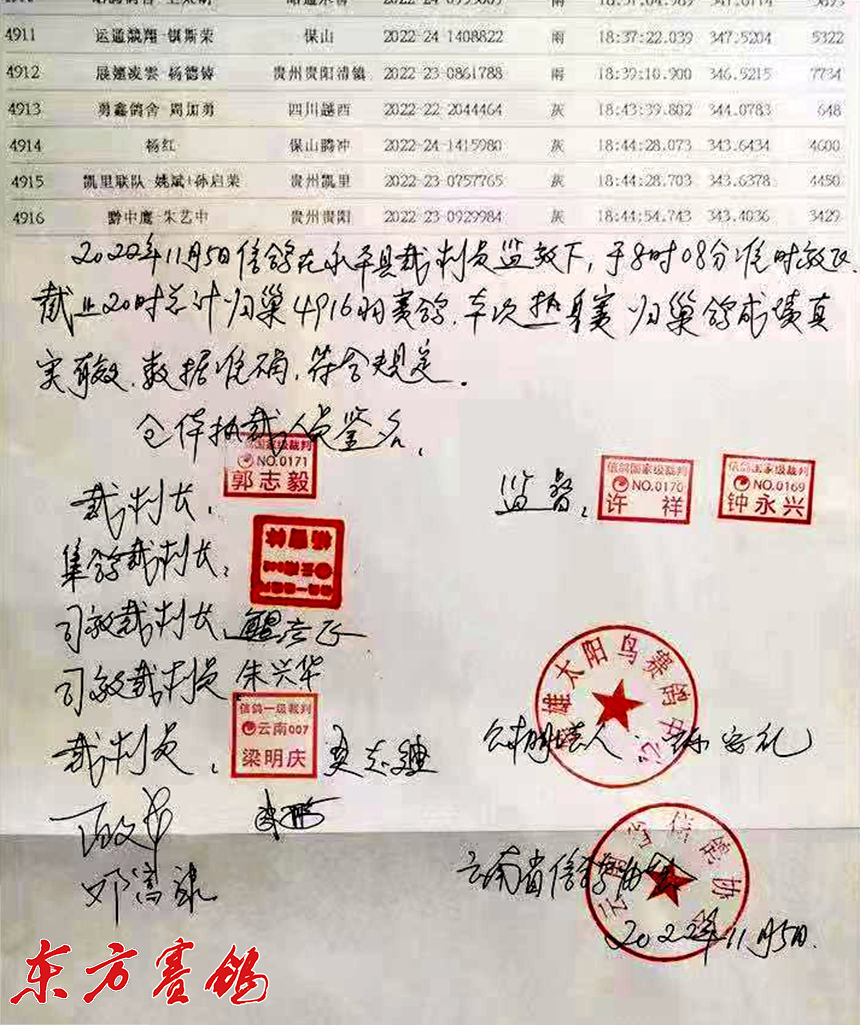 4911 运通競翔-镇斯荣 保山 2022-24-1408822 雨 18:37:22.039 347.5204 5322
4912 杨德铸 贵州贵阳清镇 2022-23-0861788 雨 18:39:10.900 346.5215 7734
4913 勇鑫鸽舍-周加勇 四川越西 2022-22-2044464 灰 18:43:39.802 344.0783 648
4914 杨红 保山腾冲 2022-24-1415980 灰 18:44:28.073 343.6434 4600
4915 凯里联队-姚斌+孙启荣 贵州凯里 2022-23-0757765 灰 18:44:28.703 343.6378 4450
4916 黔中鹰-朱艺中 贵州贵阳 2022-23-0929984 灰 18:44:54.743 343.4036 3429
2022年11月5日信鸽在永平县裁判员监放下，于8时08分准时放飞.
截止20时总计归巢4916羽赛鸽.本次热身赛归巢鸽成绩真
实有效.数据准确,符合规定.
仝体执裁人员签名、
信鸽国家级裁判
NO.0171
郭志毅
裁判长、
监督、
信鸽国家级裁判
NO.0170
许祥
信鸽国家级裁判
NO.0169
钟永兴
集鸽裁判长、
司放裁判长、
司放裁判员 朱兴华
裁判员、
信鸽一级裁判
云南007
梁明庆
雄太阳鸟赛鸽中心
公棚负责人：
云南省信鸽协会
2022年11月5日.
东方赛鸽